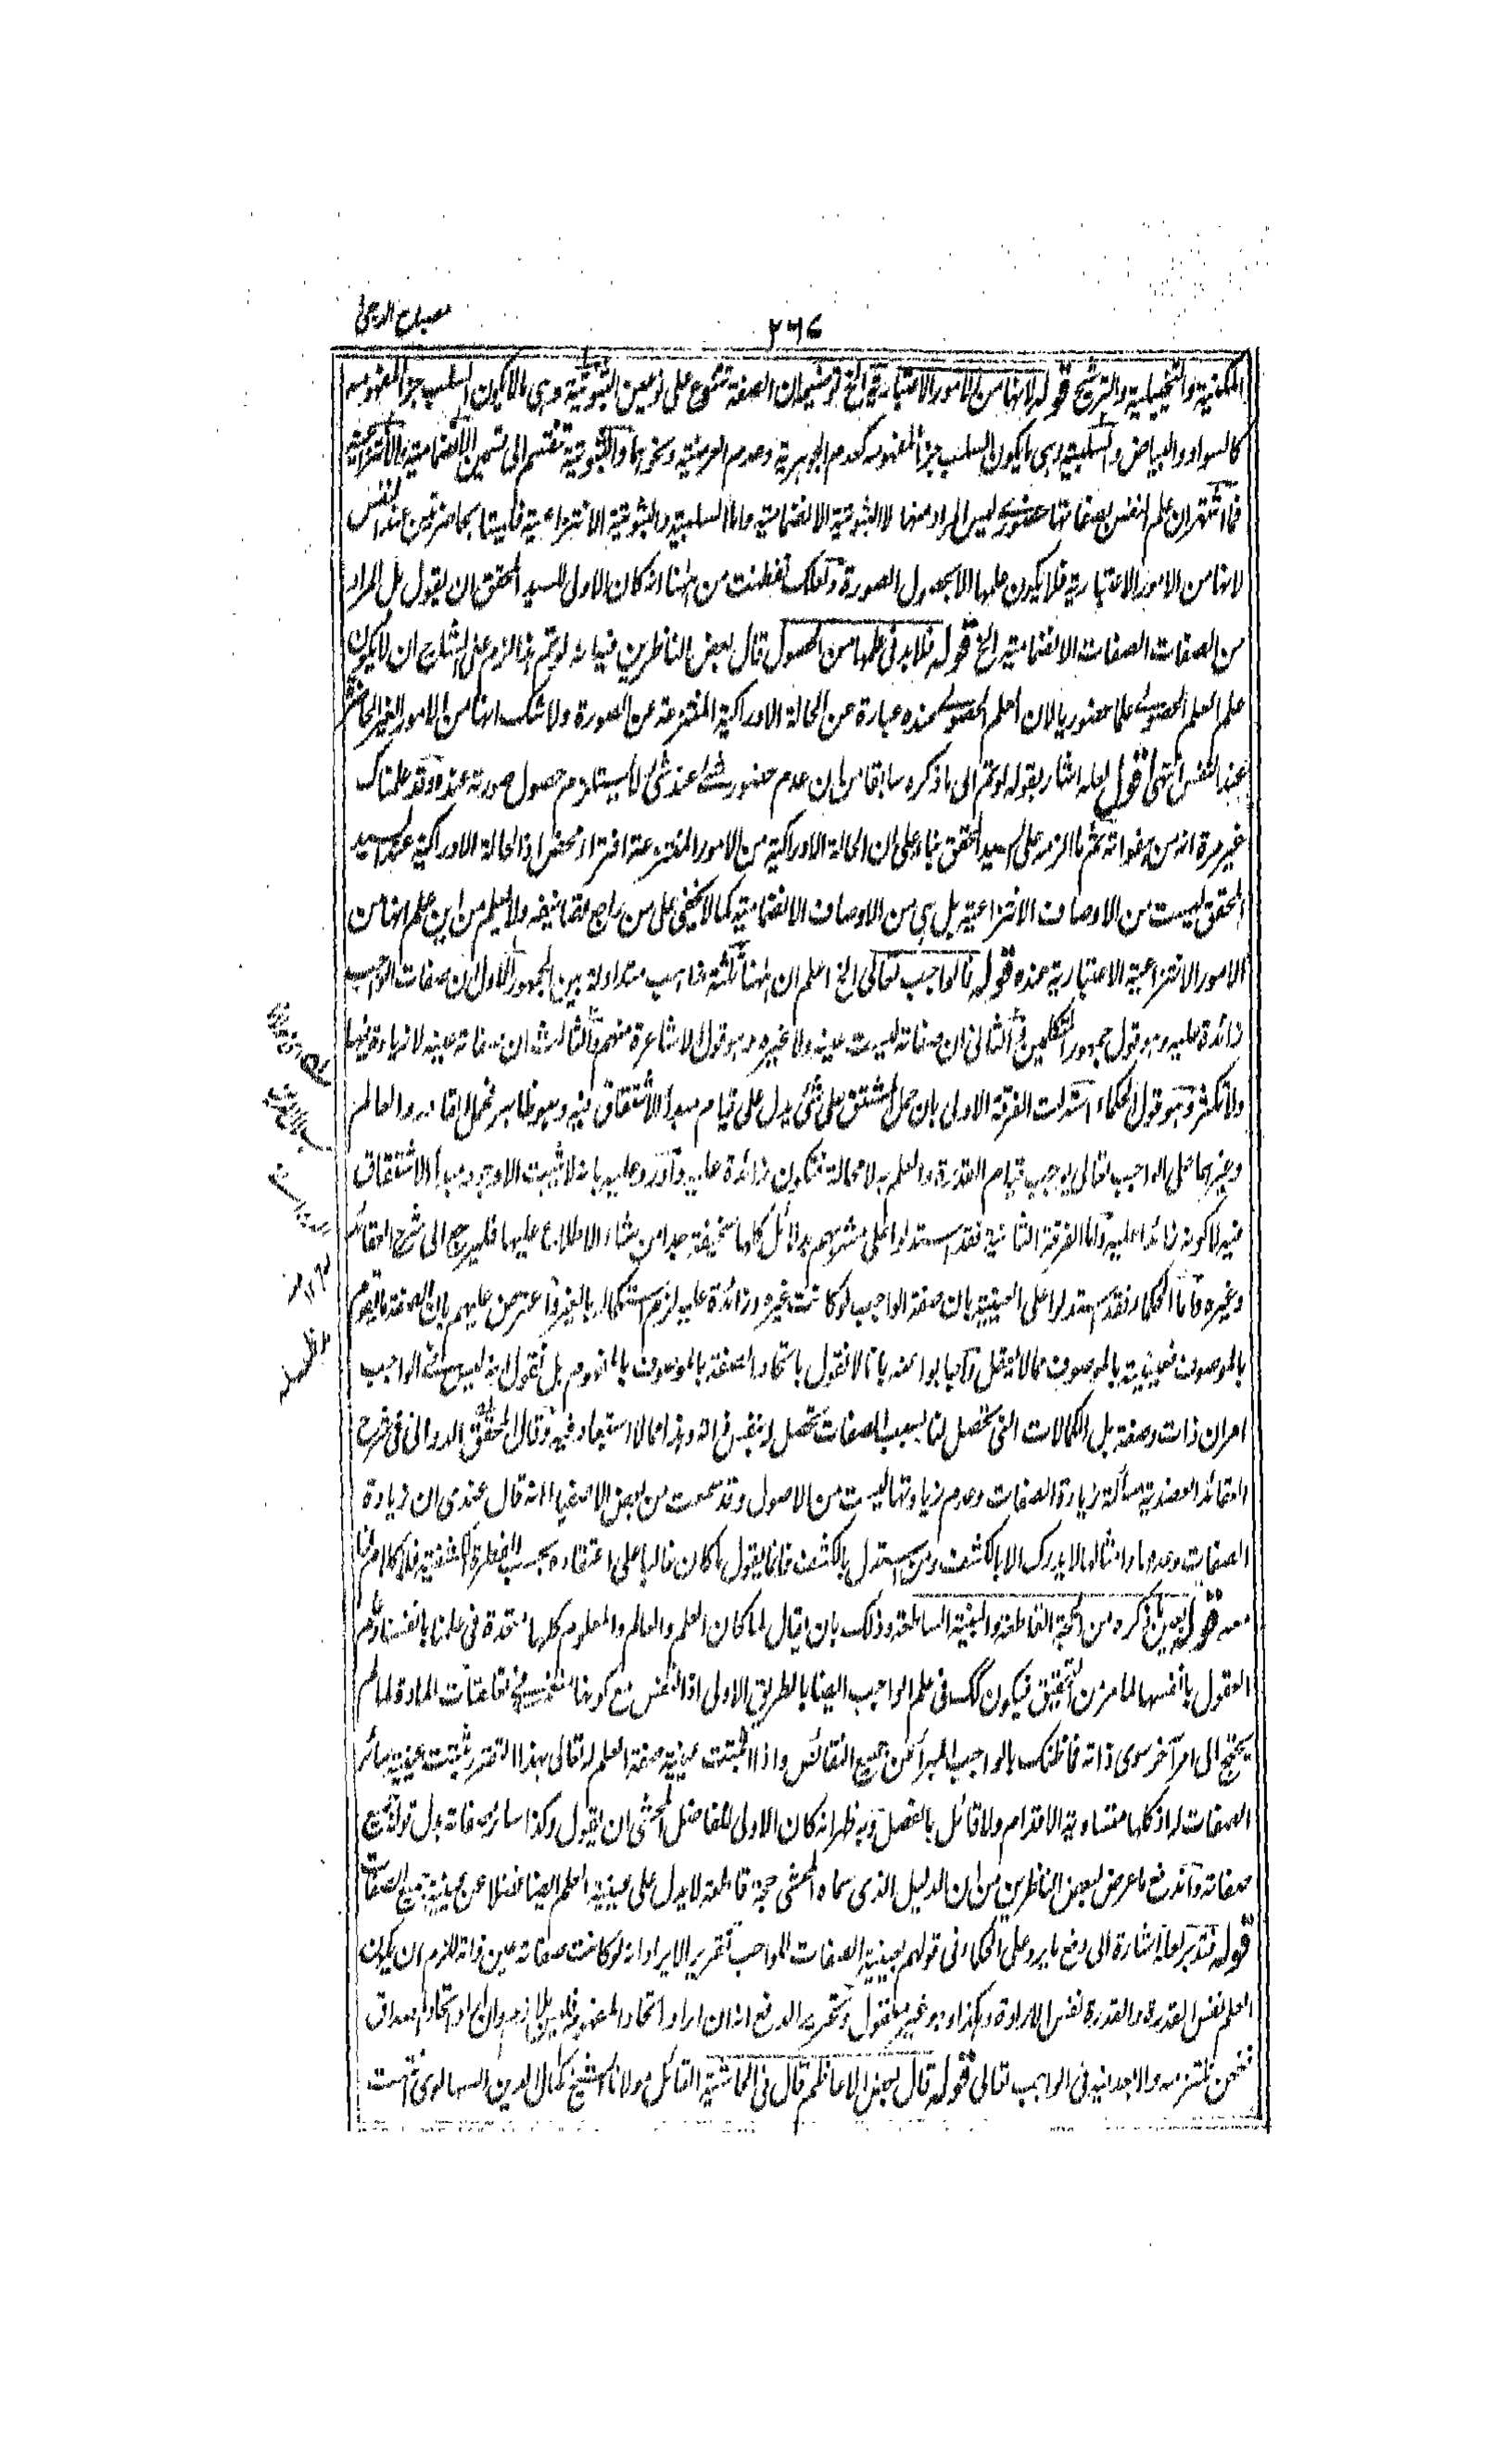 مصباح الدجى
٢٦٧
المكنية والتخييلية والترشيح قوله لانها من الامور الاعتبارية الخ توضيحه ان الصفة تتنوع على نوعين الثبوتية وهى ما لا يكون السلب جزأ لمفهومه
كالسواد والبياض والسلبية وهى ما يكون السلب جزأ لمفهومه كعدم الجوهرية وعدم العرضية ونحوهما والثبوتية تنقسم الى قسمين الانضمامية والانتزاعية
فما اشتهر ان علم النفس بصفاتها حضورى ليس المراد منها الا الثبوتية الانضمامية واما السلبية والثبوتية الانتزاعية فليستا بحاضرتين عند النفس
لانها من الامور الاعتبارية فلا يكون علمها الا بحصول الصورة ولعلك تفطنت من ههنا انه كان الاولى للسيد المحقق ان يقول بل المراد
من الصفات الصفات الانضمامية الخ قوله فلا بد فى علمها من الحصول قال بعض الناظرين فيه انه لو تم هذا لزم على الشارح ان لا يكون
علم العلم الحصولى علما حضوريا لان العلم الحصولى عنده عبارة عن الحالة الادراكية المنتزعة عن الصورة ولا شك انها من الامور الغير الحاضرة
عند النفس انتهى اقول لعله اشار بقوله لو تم الى ما ذكره سابقا من ان عدم حضور شئ عند شئ لا يستلزم حصول صورته عنده وقد علمناك
غير مرة انه من هفواته ثم ما الزمه على السيد المحقق بناء على ان الحالة الادراكية من الامور المنتزعة افتراء محض اذ الحالة الادراكية عند السيد
المحقق ليست من الاوصاف الانتزاعية بل هى من الاوصاف الانضمامية كما لا يخفى على من راجع تصانيفه ولا يعلم من اين علم انها من
الامور الانتزاعية الاعتبارية عنده قوله فالواجب تعالى الخ اعلم ان ههنا ثلثة مذاهب متداولة بين الجمهور الاول ان صفات الواجب
زائدة عليه وهو قول جمهور المتكلمين والثانى ان صفاته ليست عينه ولا غيره وهو قول الاشاعرة منهم والثالث ان صفاته عينه لا زيادة فيها
ولا تكثر وهو قول الحكماء استدلت الفرقة الاولى بان حمل المشتق على شئ يدل على قيام مبدأ الاشتقاق فيه وهو ظاهر فحمل القادر والعالم
وغيرهما على الواجب تعالى يوجب قيام القدرة والعلم به لا محالة فتكون زائدة عليه واورد عليه بانه لا يثبت الا وجود مبدأ الاشتقاق
فيه لا كونه زائدا عليه واما الفرقة الثانية فقد استدلوا على مشربهم بدلائل كلها سخيفة جدا من شاء الاطلاع عليها فليرجع الى شرح العقائد
وغيره واما الحكماء فقد استدلوا على العينية بان صفة الواجب لو كانت غيره وزائدة عليه لزم استكماله بالغير واعترض عليهم بان الصفة ما يقوم
بالموصوف فعينيته بالموصوف مما لا يعقل واجابوا عنه بانا لا نقول باتحاد الصفة بالموصوف بالمفهوم بل نقول انه ليس فى الواجب
امران ذات وصفة بل الكمالات التى تحصل لنا بسبب الصفات تحصل له بنفس ذاته وهذا مما لا استبعاد فيه وقال المحقق الدوانى فى شرح
العقائد العضدية مسألة زيادة الصفات وعدم زيادتها ليست من الاصول وقد سمعت من بعض الاصفياء انه قال عندى ان زيادة
الصفات وعدمها وامثالها لا يدرك الا بالكشف ومن استدل بالكشف فانما يقول ما كان غالبا على اعتقاده بحسب الفطرة الكشفية فلا كلام لنا
معه قوله بعين ما ذكره من الحجة القاطعة والبينة الساطعة وذلك بان يقال لما كان العلم والعالم والمعلوم كلها متحدة فى علمنا بانفسنا وعلم
العقول بانفسها لما مر من التحقيق فيكون كذلك فى علم الواجب ايضا بالطريق الاولى اذ النفس مع كونها منغمسة فى تعلقات المادة لما لم
يحتج الى امر آخر سوى ذاته فما ظنك بالواجب المبرأ عن جميع النقائص واذا ثبتت عينية صفة العلم له تعالى بهذا التقرير ثبتت عينية سائر
الصفات له اذ كلها متساوية الاقدام ولا قائل بالفصل وبه ظهر انه كان الاولى للفاضل المحشى ان يقول وكذا سائر صفاته بدل قوله جميع
صفاته واندفع ما عرض لبعض الناظرين من ان الدليل الذى سماه المحشى حجة قاطعة لا يدل على عينية العلم ايضا فضلا عن عينية جميع الصفات
قوله فتدبر لعله اشارة الى دفع ما يرد على الحكماء فى قولهم بعينية الصفات للواجب تقرير الايراد انه لو كانت صفاته عين ذاته للزم ان يكون
العلم نفس القدرة والقدرة نفس الارادة وهكذا وهو غير معقول وتقرير الدفع انه ان اراد اتحاد المفهوم فليس بلازم وان اراد اتحاد المصداق
فنحن نلتزمه ولا بعد فيه فى الواجب تعالى قوله قال بعض الاعاظم قال فى الحاشية القائل مولانا الشيخ كمال الدين السهالوى انتهت